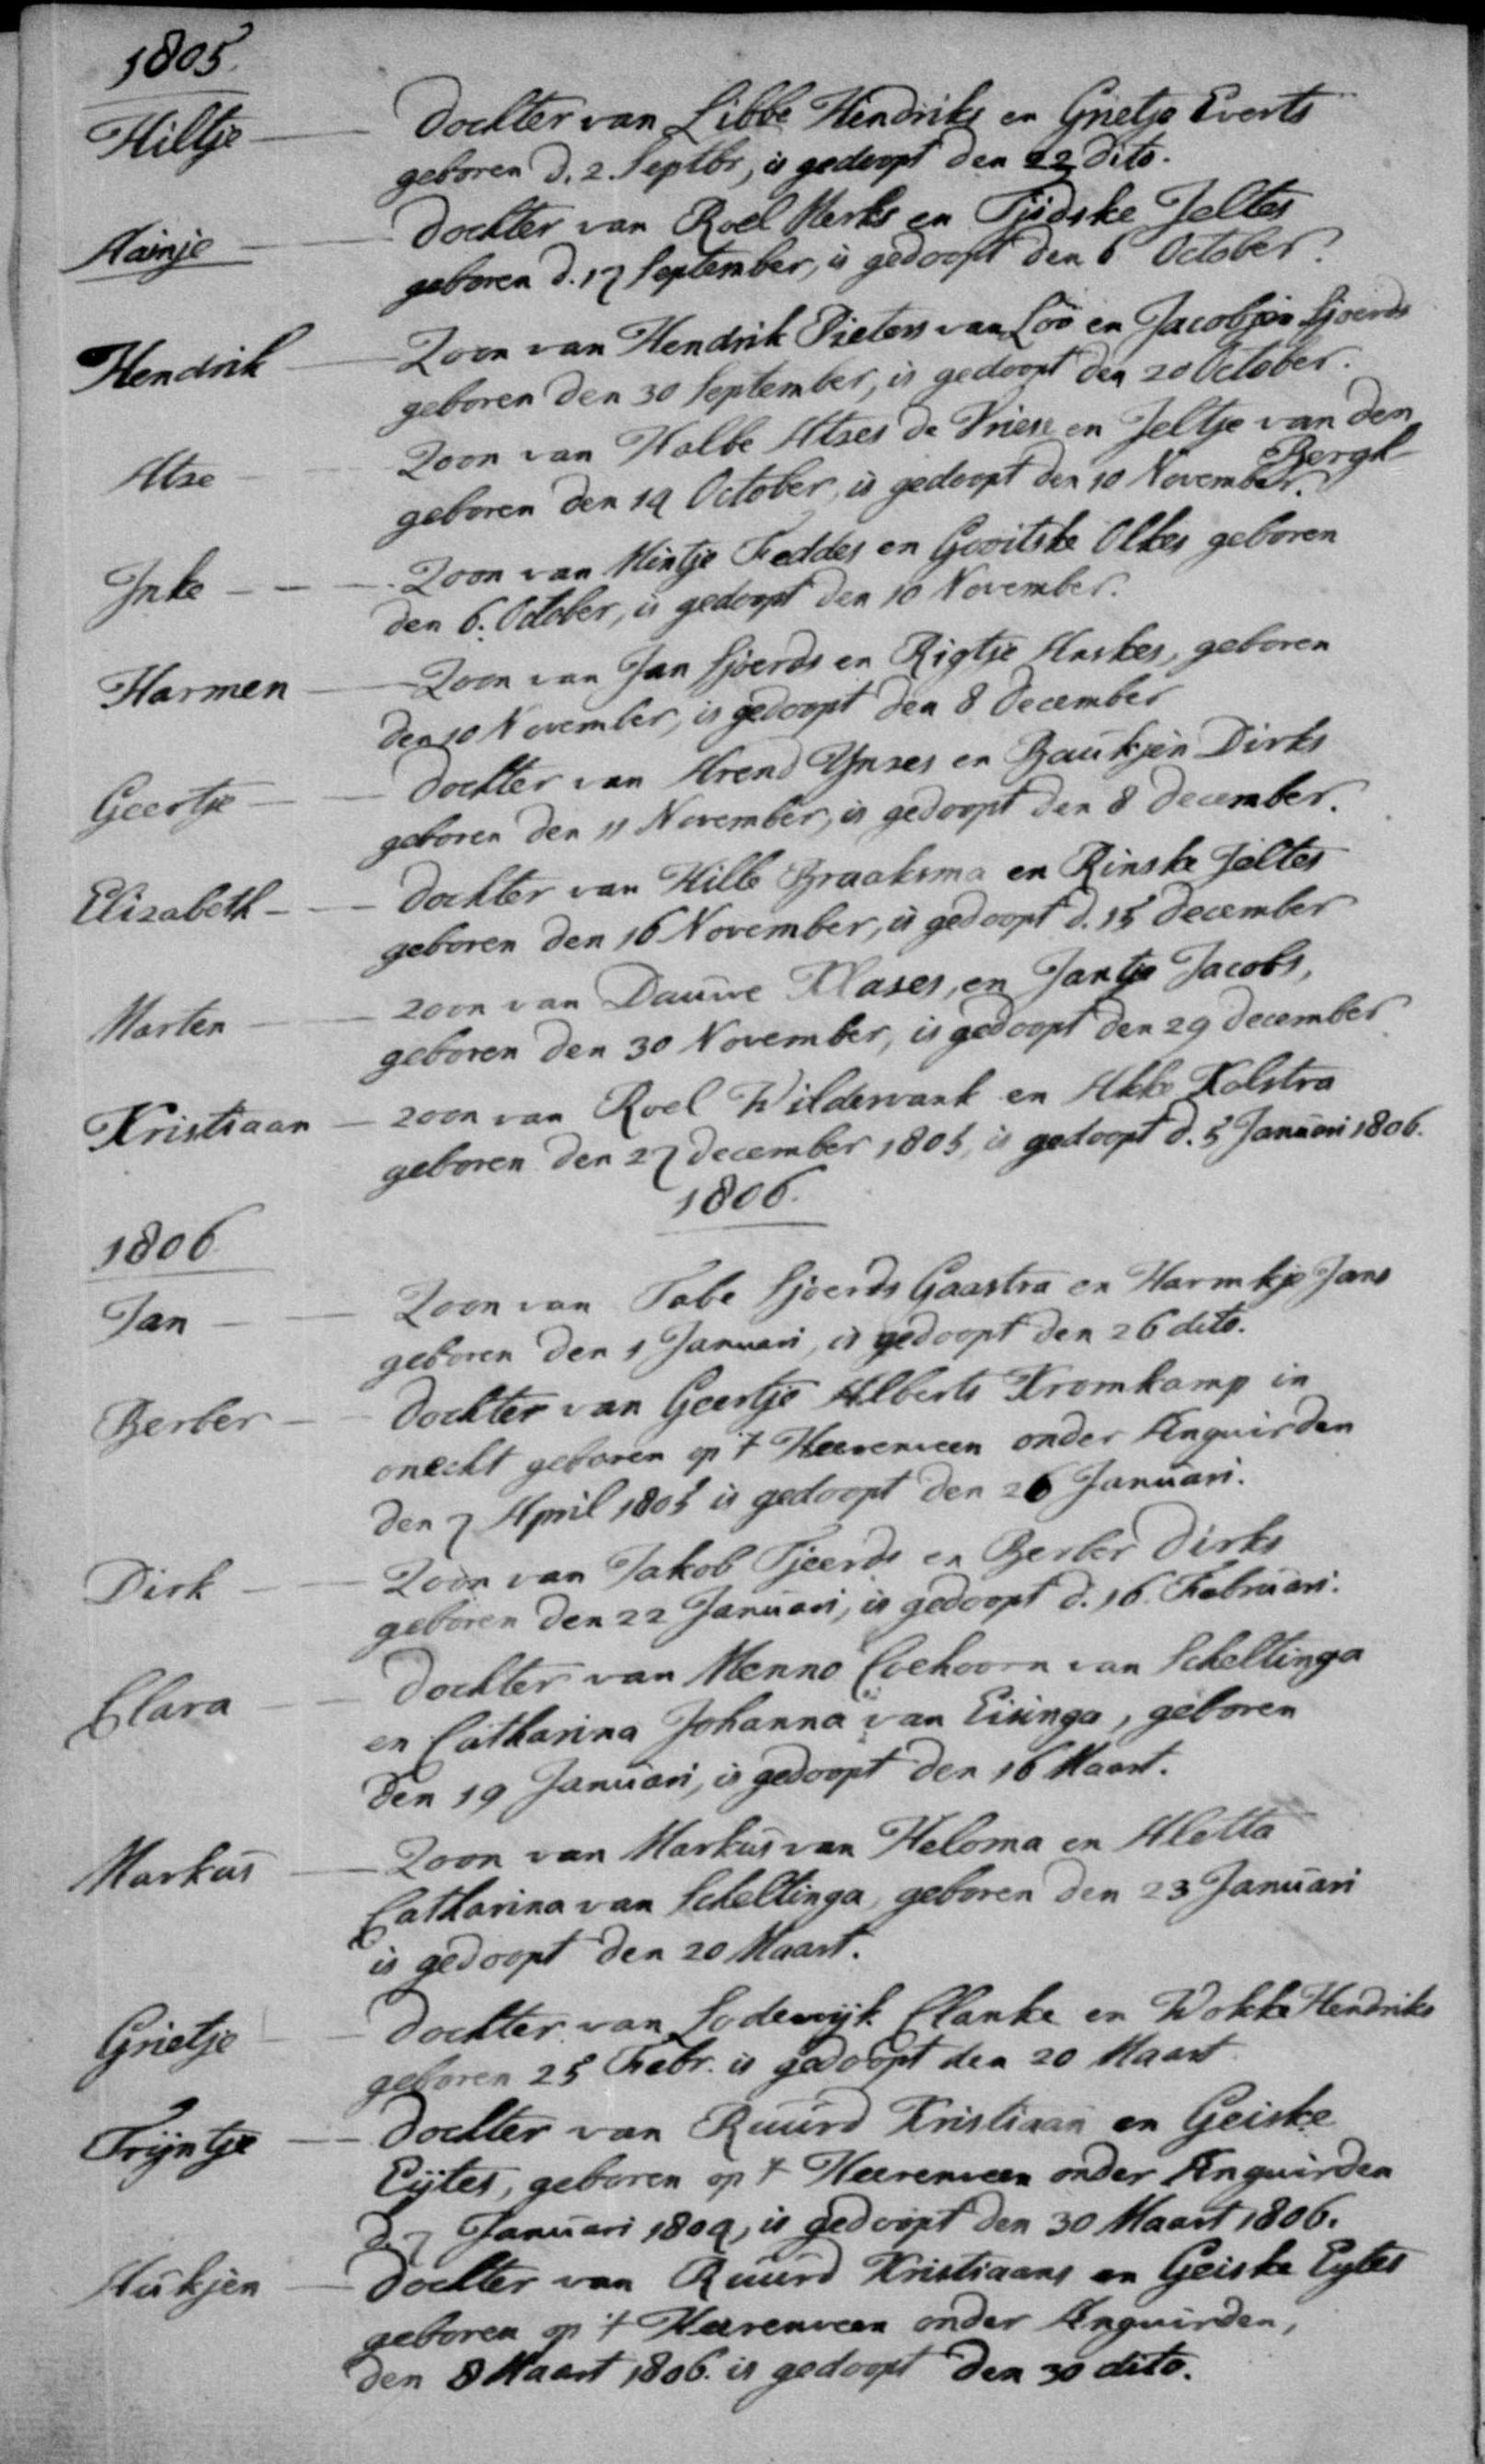 1805.
Hiltje — Dochter van Libbe Hendriks en Grietje Everts
geboren d. 2. Septbr, is gedoopt den 22 dito.
Aainje — Dochter van Roel Merks en Tjidske Jeltes
geboren d. 17 September, is gedoopt den 6 October.
Hendrik — Zoon van Hendrik Pieters van Loo en Jacobjen Sjoerds
geboren den 30 September, is gedoopt den 20 October.
Atse — Zoon van Halbe Atses de Vriese en Jeltje van den
Bergh
geboren den 14 October, is gedoopt den 10 November.
Inke — Zoon van Mintje Feddes en Gooitske Olkes geboren
den 6. October, is gedoopt den 10 November.
Harmen — Zoon van Jan Sjoerds en Rigtje Anskes, geboren
den 10 November, is gedoopt den 8 December
Geertje — Dochter van Arend Ynzes en Baukjen Dirks
geboren den 11 November, is gedoopt den 8 December.
Elizabeth — Dochter van Hille Braaksma en Rinske Jeltes
geboren den 16 November, is gedoopt d. 15 December
Marten — zoon van Dauwe Klases, en Jantje Jacobs,
geboren den 30 November, is gedoopt den 29 December
Kristiaan — zoon van Roel Wildervank en Akke Kalstra
geboren den 27 December 1805, is gedoopt d. 5 Januari 1806.
1806.
1806
Jan — Zoon van Tabe Sjoerds Gaastra en Harmkje Jans
geboren den 1 Januari, is gedoopt den 26 dito.
Berber — Dochter van Geertje Alberts Kromkamp in
onecht geboren op 't Heerenveen onder Ænguirden
den 7 April 1805 is gedoopt den 26 Januari.
Dirk — Zoon van Jakob Tjeerds en Berber Dirks
geboren den 22 Januari, is gedoopt d. 16. Februari.
Clara — Dochter van Menno Coehoorn van Scheltinga
en Catharina Johanna van Eisinga, geboren
den 19 Januari, is gedoopt den 16 Maart.
Markus — Zoon van Markus van Heloma en Aletta
Catharina van Scheltinga, geboren den 23 Januari
is gedoopt den 20 Maart.
Grietje — Dochter van Lodewijk Clanke en Wokke Hendriks
geboren 25 Febr. is gedoopt den 20 Maart
Trijntje — Dochter van Ruurd Kristiaan en Geiske
Eijtes, geboren op 't Heerenveen onder Ænguirden
d. 7 Januari 1804, is gedoopt den 30 Maart 1806.
Aukjen — Dochter van Ruurd Kristiaans en Geiske Eytes
geboren op 't Heerenveen onder Ænguirden,
den 8 Maart 1806. is gedoopt den 30 dito.